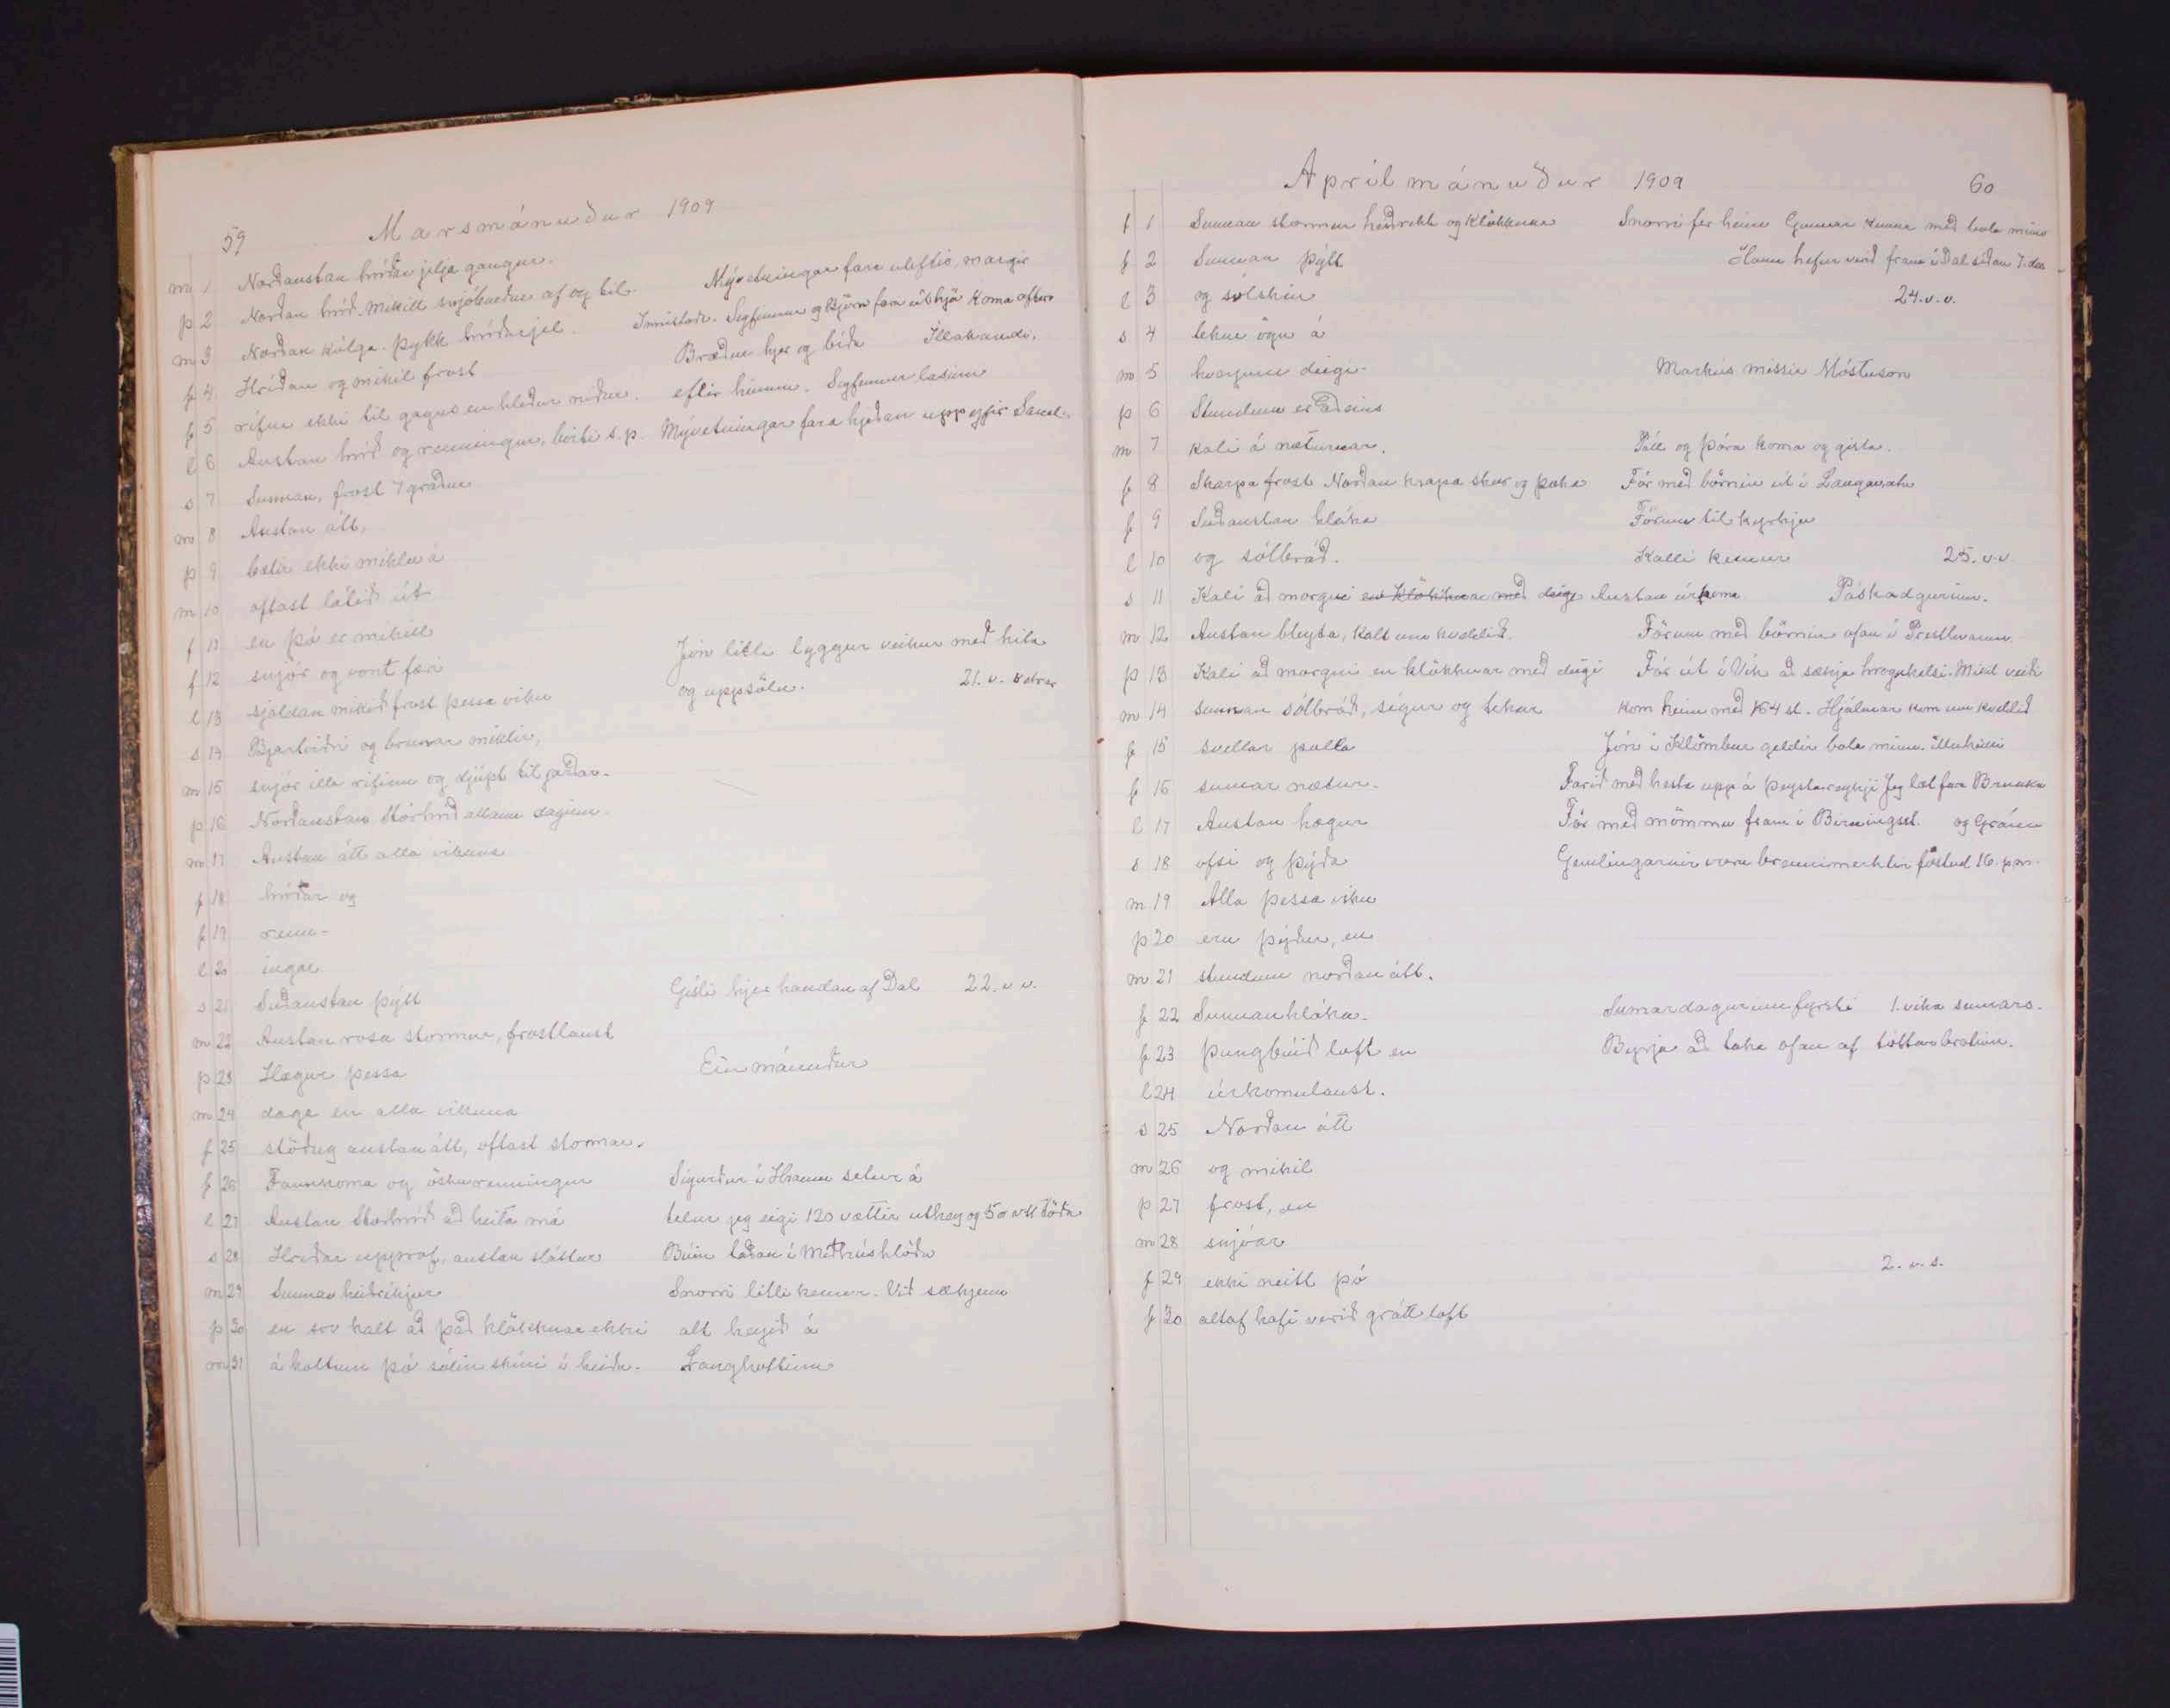 59 Marsmánuður 1909
m 1 Norðaustan hríðar jelja gangur.
þ 2 Norðan hríð. Mikill snjóburður af og til. Mývetningar fara uleftir, margir
m 3 Norðan kúlga. þykk hríðarjel. Innistaða. Sigfinnur og Björn fara úthjá koma aftur
f 4 Hríðar og mikil frost Bræður hjer og bíða Illakandi.
f 5 rífur ekki til gagns en hleður niður. eftir hinum. Sigfinnur lasinn
l 6 Austan hríð og renningur, birti s.p. Mývetningar fara hjeðan upp yfir Sand.
s 7 Sunnan, frost 7 gráður
m 8 Austan átt,
þ 9 bætir ekki miklu á
m 10 oftast látið út
f 11 en þó er mikill
f 12 snjór og vont færi Jón litli lyggur veikur með hita
l 13 sjaldan mikið frost þessa viku og uppsölu. 21. v. vetrar
s 14 Bjartviðri og brunar miklir,
m 15 snjór illa rifinn og djúpt til jarðar.
þ 16 Norðaustan Stórhríð allann daginn.
m 17 Austan átt alla vikuna
f 18 hríðar og
f 19 renn-
l 20 ingar
s 21 Suðaustan þýtt Gísli hjer handan af Dal 22. v. v.
m 22 Austan rosa stormur, frostlaust
þ 23 Hægur þessa Einmánuður
m 24 daga en alla vikuna
f 25 stöðug austanátt, oftast stormar.
f 26 Fannkoma og öskurenningur Sigurður í Hrauni setur á
l 27 Austan Stórhríð að heita má telur jeg eigi 120 vættir úthey og 50 vtt töðu
s 28 Hríðar upprof, austan sláttur Búin taðan í Miðhúshlöðu
m 29 Sunnan heiðríkjur Snorri litli kemur. Við sækjum
þ 30 en svo kalt að það klökknar ekki alt heyið á
m 31 á holtum þó sólin skíni í heiði. Langholtinu
Aprílmánuður 1909 60
f 1 Sunnan stormur heiðríkt og klökkuna Snorri fer heim Gunnar kemur með bola minn
f 2 Sunnan þýtt Hann hefur verið fram í Dal síðan 7. des
l 3 og sólskin 24. v. v.
s 4 tekur ögn á
m 5 hverjum degi. Markús missir Móstuson
þ 6 Stundum er aðeins
m 7 kali á næturnar. Páll og Þóra koma og gista.
f 8 Skarpa frost Norðan krapa skur og þoka Fór með börnin út í Langavatn
f 9 Suðaustan hláka Förum til kyrkju
l 10 og sólbráð. Kalli kemur 25. v. v
s 11 Kali að morgni en klökknar með degi Austan úrkoma Páskadgurinn.
m 12 Austan bleyta, kalt um kveldið. Förum með börnin ofan í Presthvamm.
þ 13 Kali að morgni en klökknar með degi Fór út í Vík að sækja hrognkelsi. Mikil veiði
m 14 sunnan sólbráð, sígur og tekur kom heim með 164 st. Hjálmar kom um kveldið
f 15 svellar pulla Jón í Klömbur geldir bola minn. illuheilli
f 16 sumar nætur. Farið með hesta upp á Þeystareykji Jeg læt fara Brunku
l 17 Austan hægur Fór með mömmu fram í Birningsst. og Grána
s 18 ofsi og þýða Gemlingarnir voru brennimerktir föstud 16. þ.m.
m 19 Alla þessa viku
þ 20 eru þýður, en
m 21 stundum norðan átt.
f 22 Sunnan hláka. Sumardagurinn fyrsti 1. vika sumars.
f 23 þungbúið loft en Byrja að taka ofan af tóttarbrotinu.
l 24 úrkomulaust.
s 25 Norðan átt
m 26 og mikil
þ 27 frost, en
m 28 snjóar
f 29 ekki neitt þó 2. v. s.
f 30 altaf hafi verið grátt loft